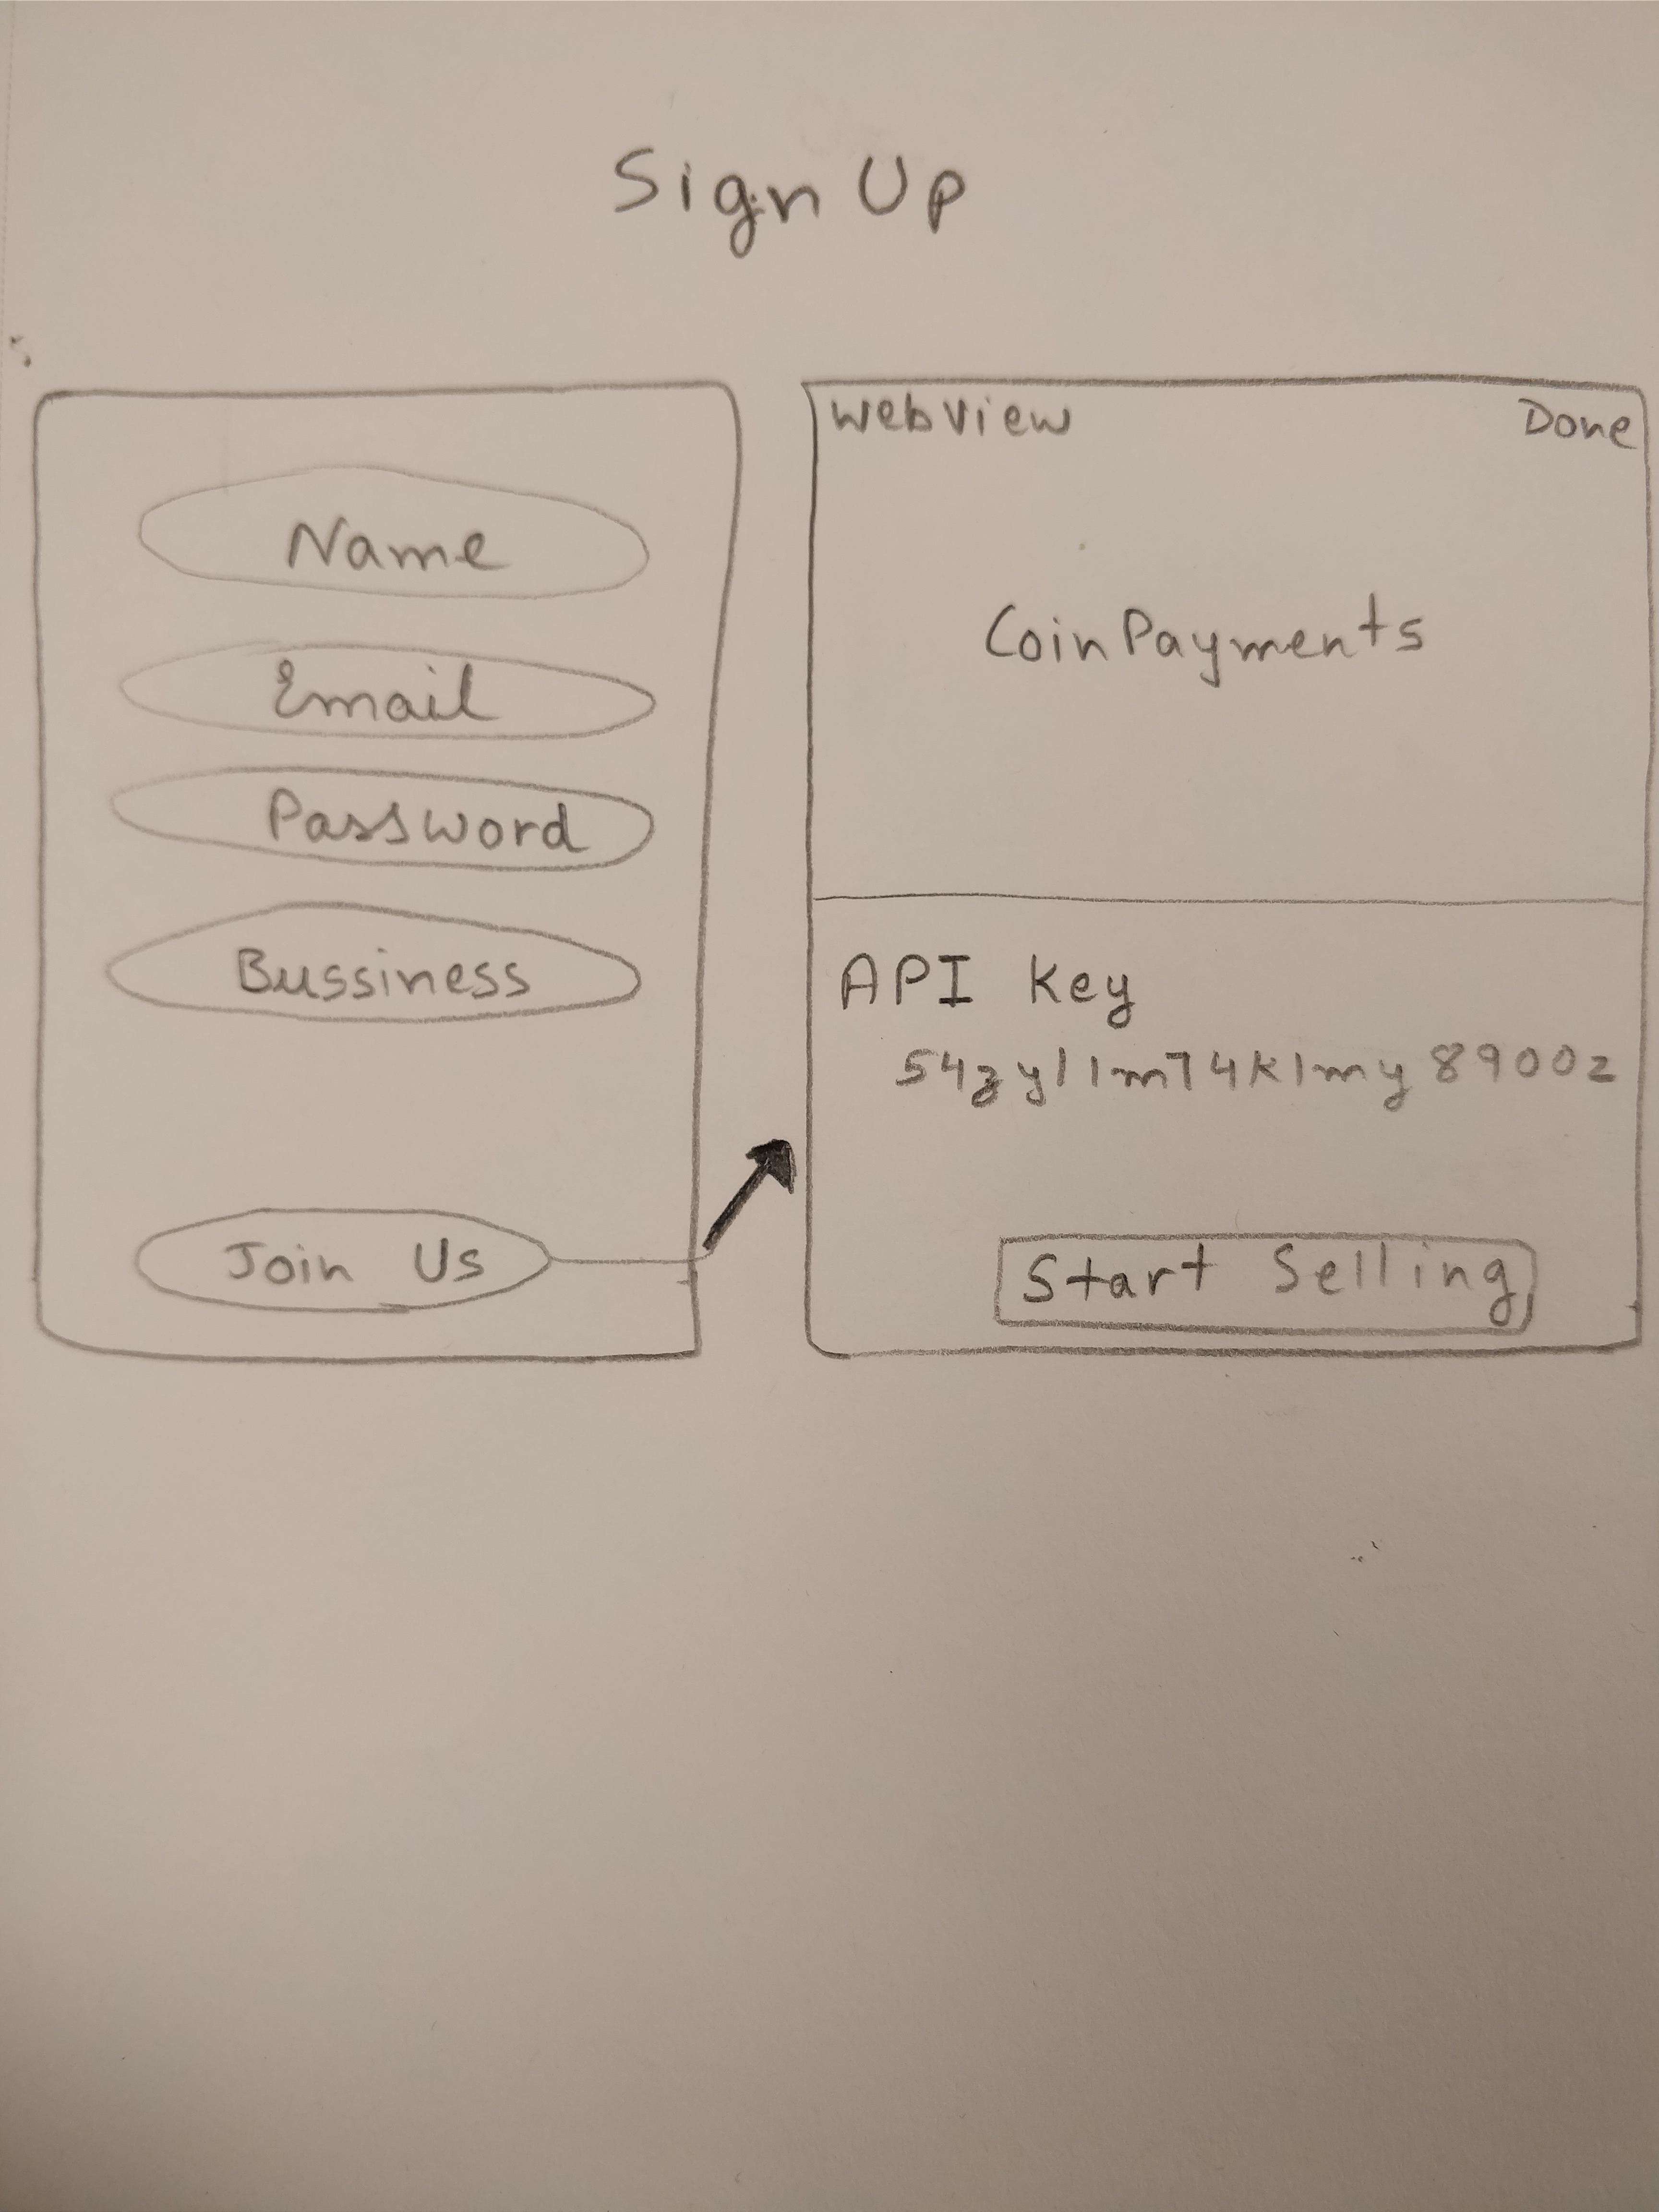 Sign Up
Name
Email
Password
Bussiness
Join Us
Web View
Done
CoinPayments
API Key
54zyllm74klmy8900z
Start Selling